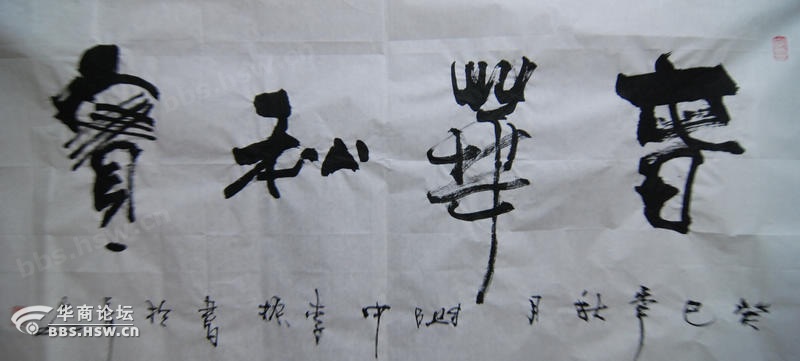 春華秋實
癸巳秋月 中李振書於
华商论坛
BBS.HSW.CN
bbs.hsw.cn